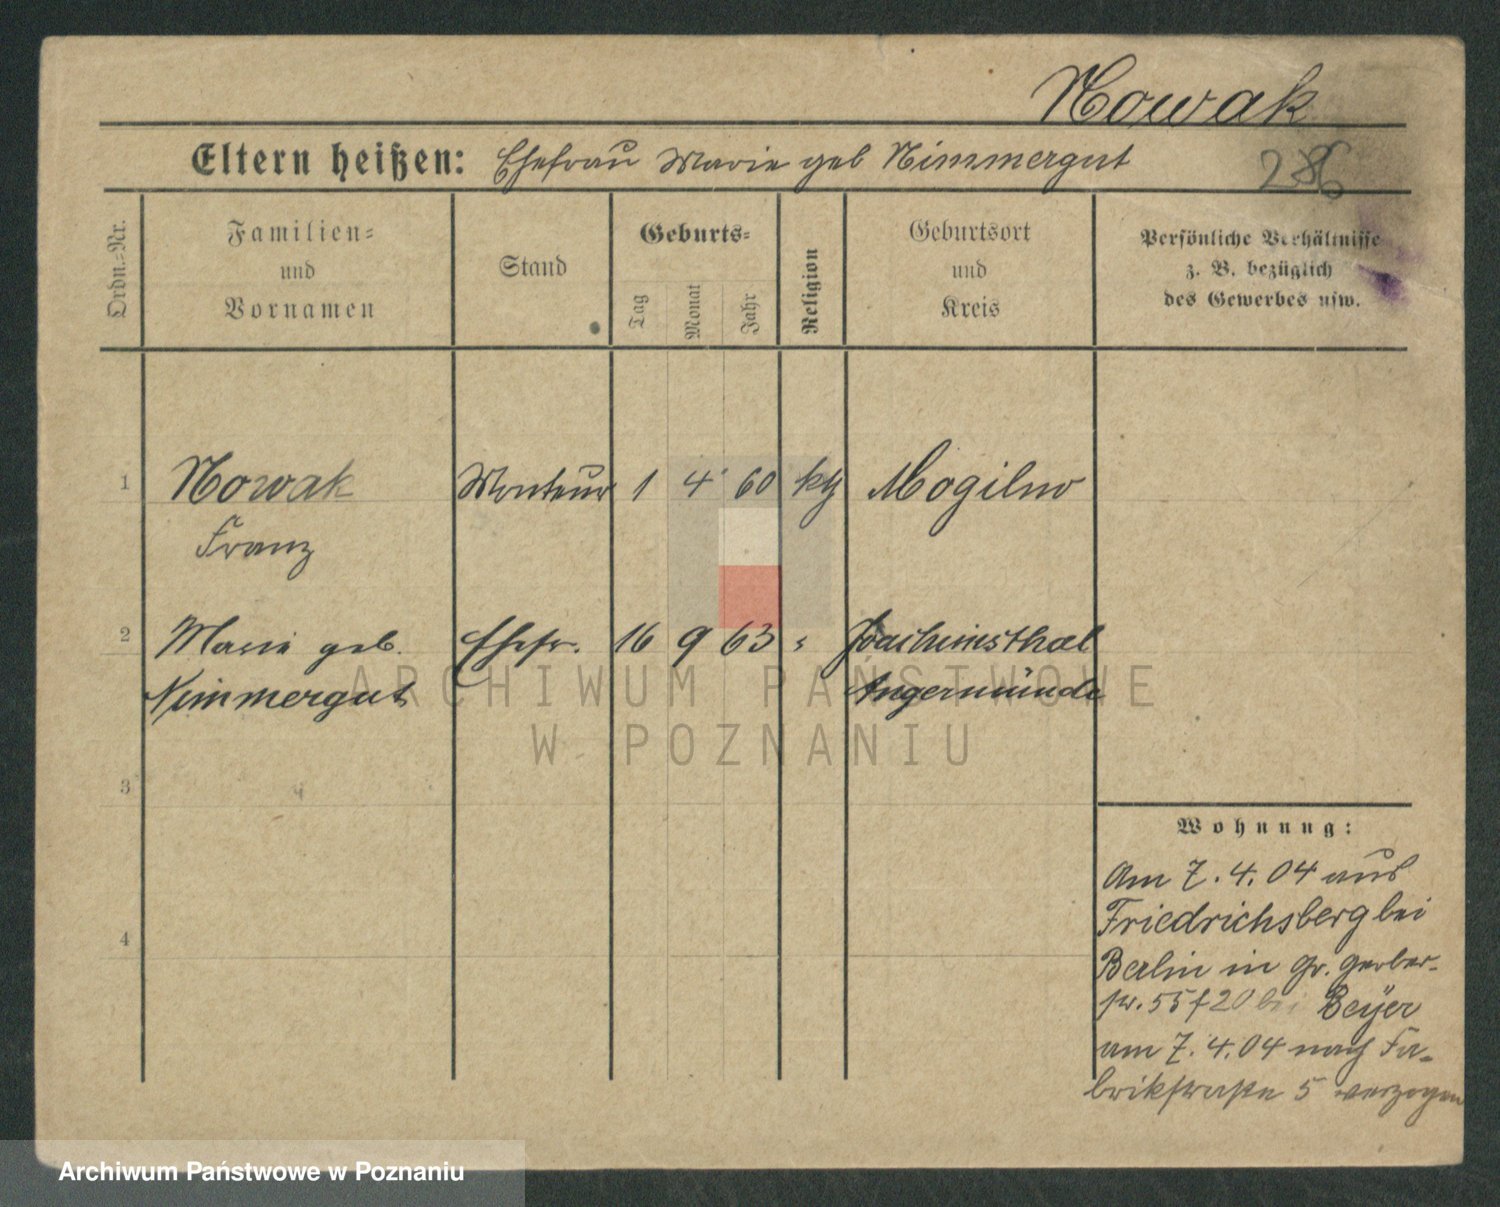 Nowak
Eltern heißen: Ehefrau Marie geb Nimmergut
286
Ordn.-Nr.
Familien-
und
Vornamen
Stand
Geburts-
Tag
Monat
Jahr
Religion
Geburtsort
und
Kreis
Persönliche Verhältnisse
z. B. bezüglich
des Gewerbes usw.
1 Nowak Monteur 1 4 60 kth Mogilno
Franz
2 Marie geb. Ehefr. 16 9 63 " Joachimsthal
Nimmergut Angermünde
3
4
Wohnung:
Am 7.4.04 aus
Friedrichsberg bei
Berlin in Gr. Gerber-
str. 55 f 20 bei Beÿer
am 7.4.04 nach Fa-
brikstraße 5 verzogen
ARCHIWUM PAŃSTWOWE
W POZNANIU
Archiwum Państwowe w Poznaniu